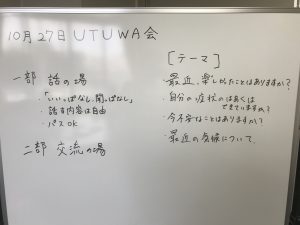 10月27日 UTUWA会
一部 話の場
・「いいっぱなし、聞きっぱなし」
・話す内容は自由
・パスOK
二部 交流の場
[テーマ]
・最近、楽しかったことはありますか?
・自分の症状のはあくは
できていますか?
・今不安なことはありますか?
・最近の気候について